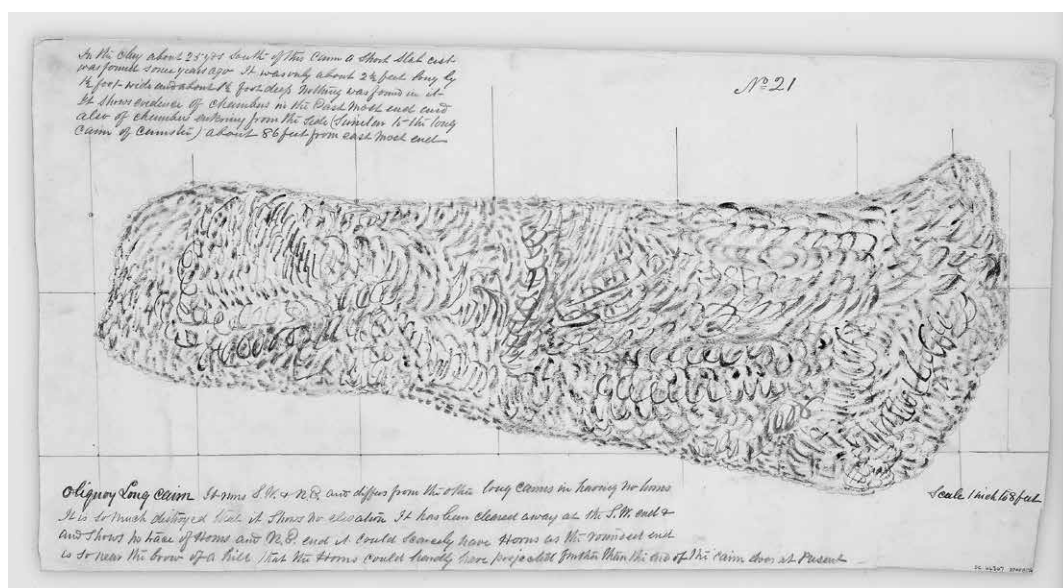 In the clay about 25 yds South of this Cairn a Short Slab cist
was found some years ago It was only about 2½ feet long by
1½ foot wide and about 1½ foot deep Nothing was found in it
It shows evidence of chamber in the East most end and
also of chamber entering from the Side (Similar to the long
cairn of Camster) about 86 feet from east most end
No 21
Oliquoy Long Cairn It runs S.W. & N.E. and differs from the other long cairns in having no horns
It is so much destroyed that it shows no elevation It has been cleared away at the S.W. end &
and shows no trace of Horns and N.E. end it could scarcely have Horns as the roundest end
is so near the brow of a hill that the Horns could hardly have projected further than the end of the cairn does at Present
Scale 1 inch to 8 feet